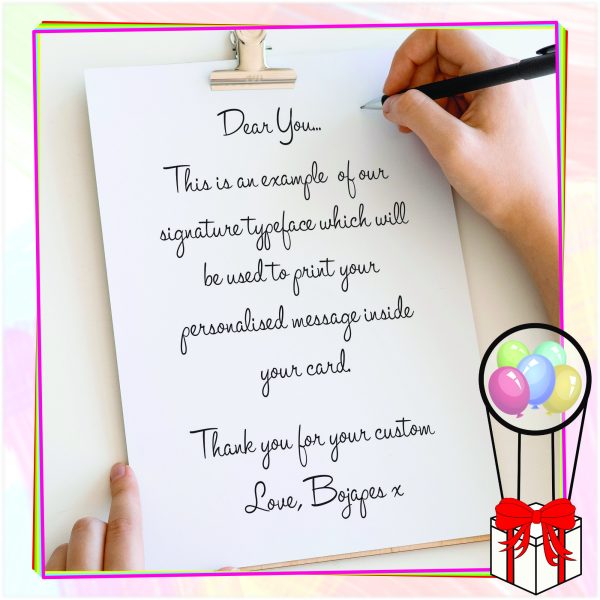 Dear You...
This is an example of our
signature typeface which will
be used to print your
personalised message inside
your card.
Thank you for your custom
Love, Bojapes x